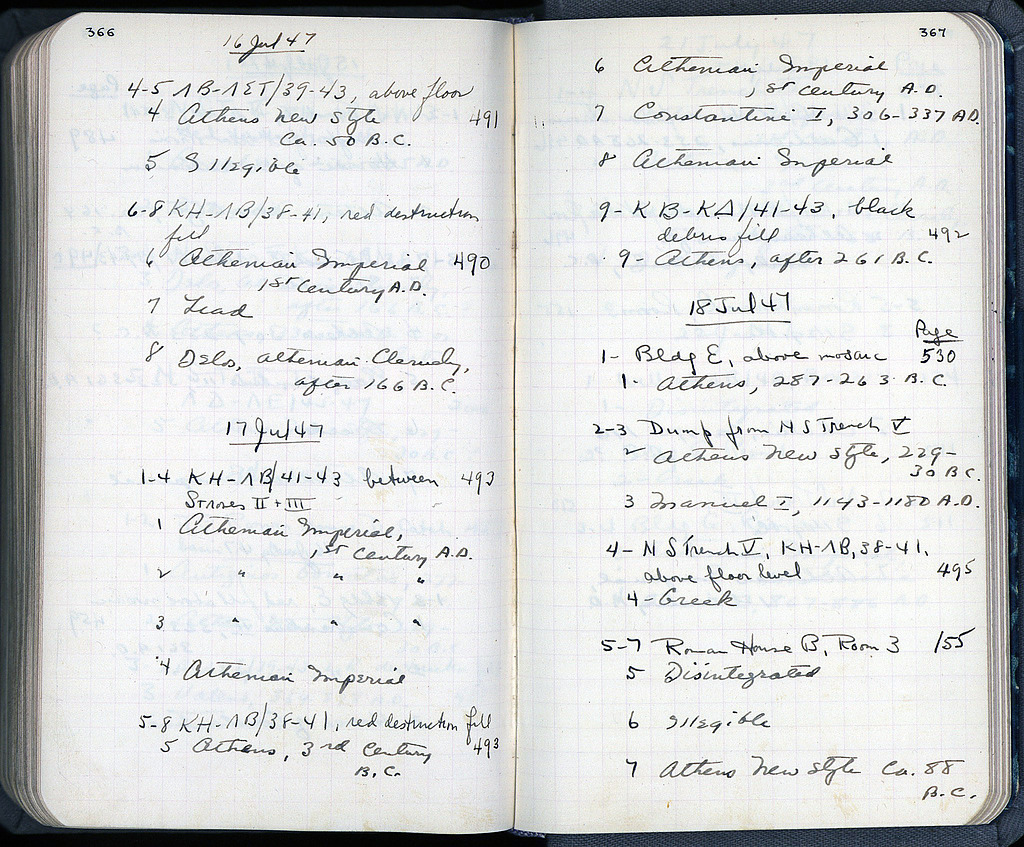 366
16 Jul 47
4-5 ΛΒ-ΛΣΤ/39-43, above floor
4 Athens New Style 491
Ca. 50 B.C.
5 Illegible
6-8 ΚΗ-ΛΒ/38-41, red destruction
fill
6 Athenian Imperial 490
1st Century A.D.
7 Lead
8 Delos, Athenian Cleruchy,
after 166 B.C.
17 Jul 47
1-4 ΚΗ-ΛΒ/41-43 between 493
Stroses II + III
1 Athenian Imperial,
1st Century A.D.
2 " " "
3 " " "
4 Athenian Imperial
5-8 ΚΗ-ΛΒ/38-41, red destruction fill
5 Athens, 3rd Century 493
B.C.
367
6 Athenian Imperial
1st Century A.D.
7 Constantine I, 306-337 A.D.
8 Athenian Imperial
9- ΚΒ-ΚΔ/41-43, black
debris fill 492
9- Athens, after 261 B.C.
18 Jul 47
Page
1- Bldg E, above mosaic 530
1- Athens, 287-263 B.C.
2-3 Dump from NS Trench V
2 Athens New Style, 229-
30 B.C.
3 Manuel I, 1143-1180 A.D.
4- NS Trench V, ΚΗ-ΛΒ, 38-41,
above floor level 495
4- Greek
5-7 Roman House B, Room 3 155
5 Disintegrated
6 Illegible
7 Athens New Style Ca. 88
B.C.